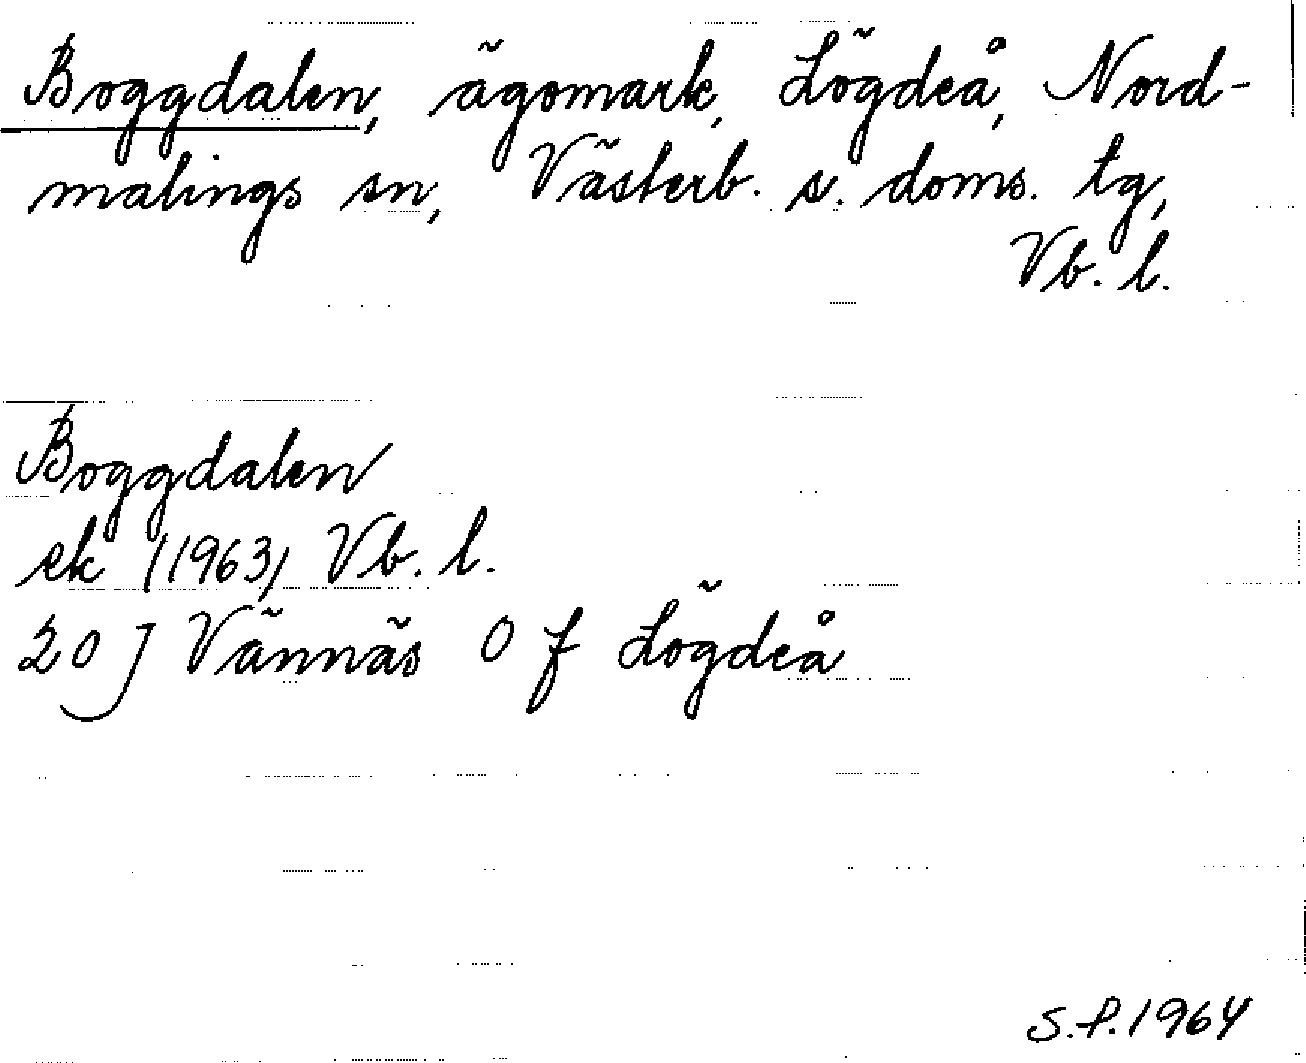 Boggdalen, ägomark, Lögdeå, Nord-
malings sn, Västerb. s. doms. tg,
Vb. l.
Boggdalen
ek (1963) Vb. l.
20 J Vännäs O f Lögdeå
S.P. 1964